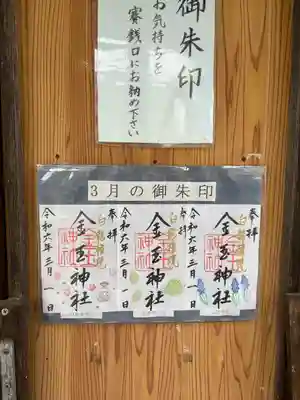 御朱印
お気持ちを
賽銭口にお納め下さい
3月の御朱印
奉拝
金玉神社
令和六年三月一日
奉拝
金玉神社
令和六年三月一日
奉拝
金玉神社
令和六年三月一日